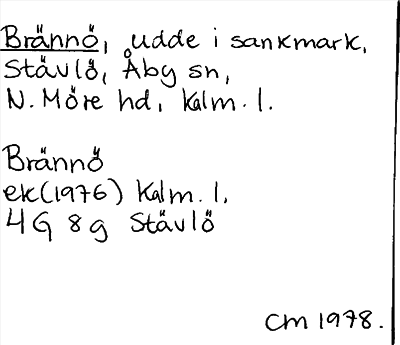 Brännö, udde i sankmark,
Stävlö, Åby sn,
N. Möre hd, Kalm. l.
Brännö
ek(1976) Kalm. l,
4G 8g Stävlö
CM 1978.